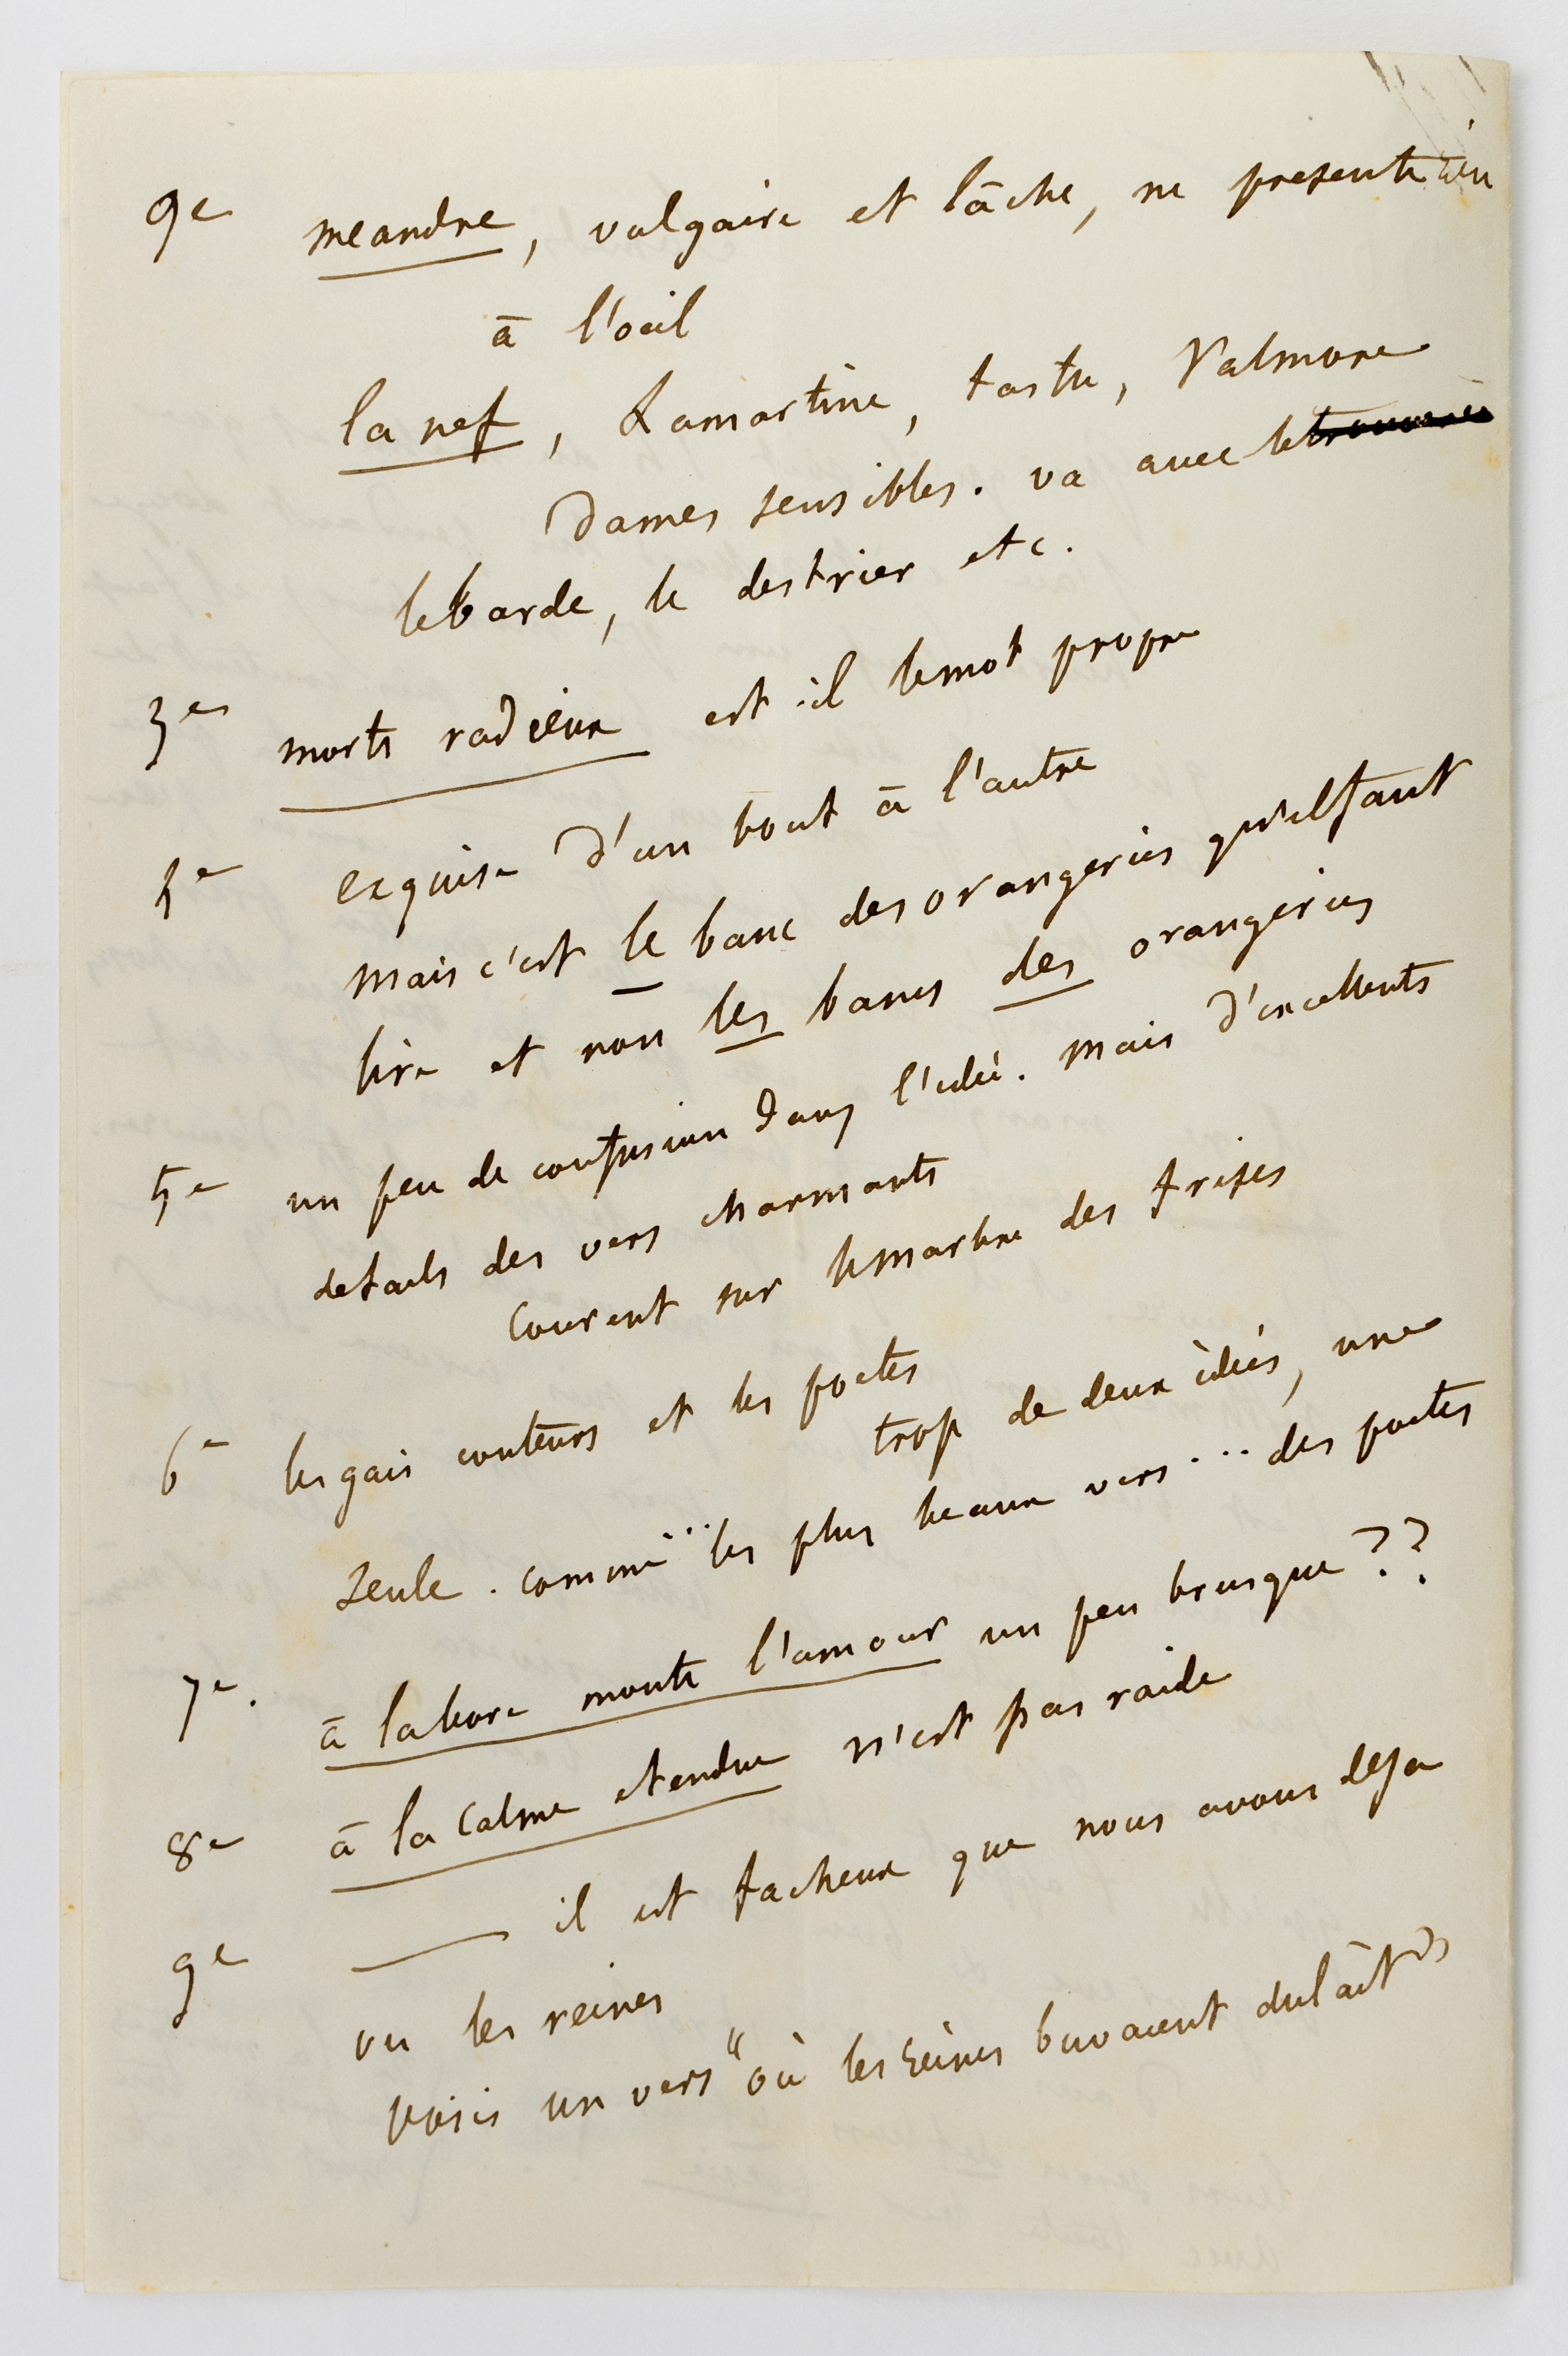 9e meandre, vulgaire et lâche, ne presente rien
à l'oeil
la nef, Lamartine, tastu, Valmore
Dames sensibles. va avec le trouvere
le barde, le destrier etc.
3e morts radieux est-il le mot propre
1e exquise d'un bout à l'autre
mais c'est le banc des orangeries qu'il faut
lire et non les bancs des orangeries
5e un peu de confusion dans l'idée. mais d'excellents
details des vers charmants
Courent sur le marbre des frises
6e les gais conteurs et les poetes
trop de deux idées, une
seule. comme... les plus beaux vers... des poetes
7e. à labore monte l'amour un peu brusque??
8e à la calme etendue n'est pas raide
9e — il est facheux que nous avons deja
vu les reines
puis un vers "où les reines buvaient du lait"